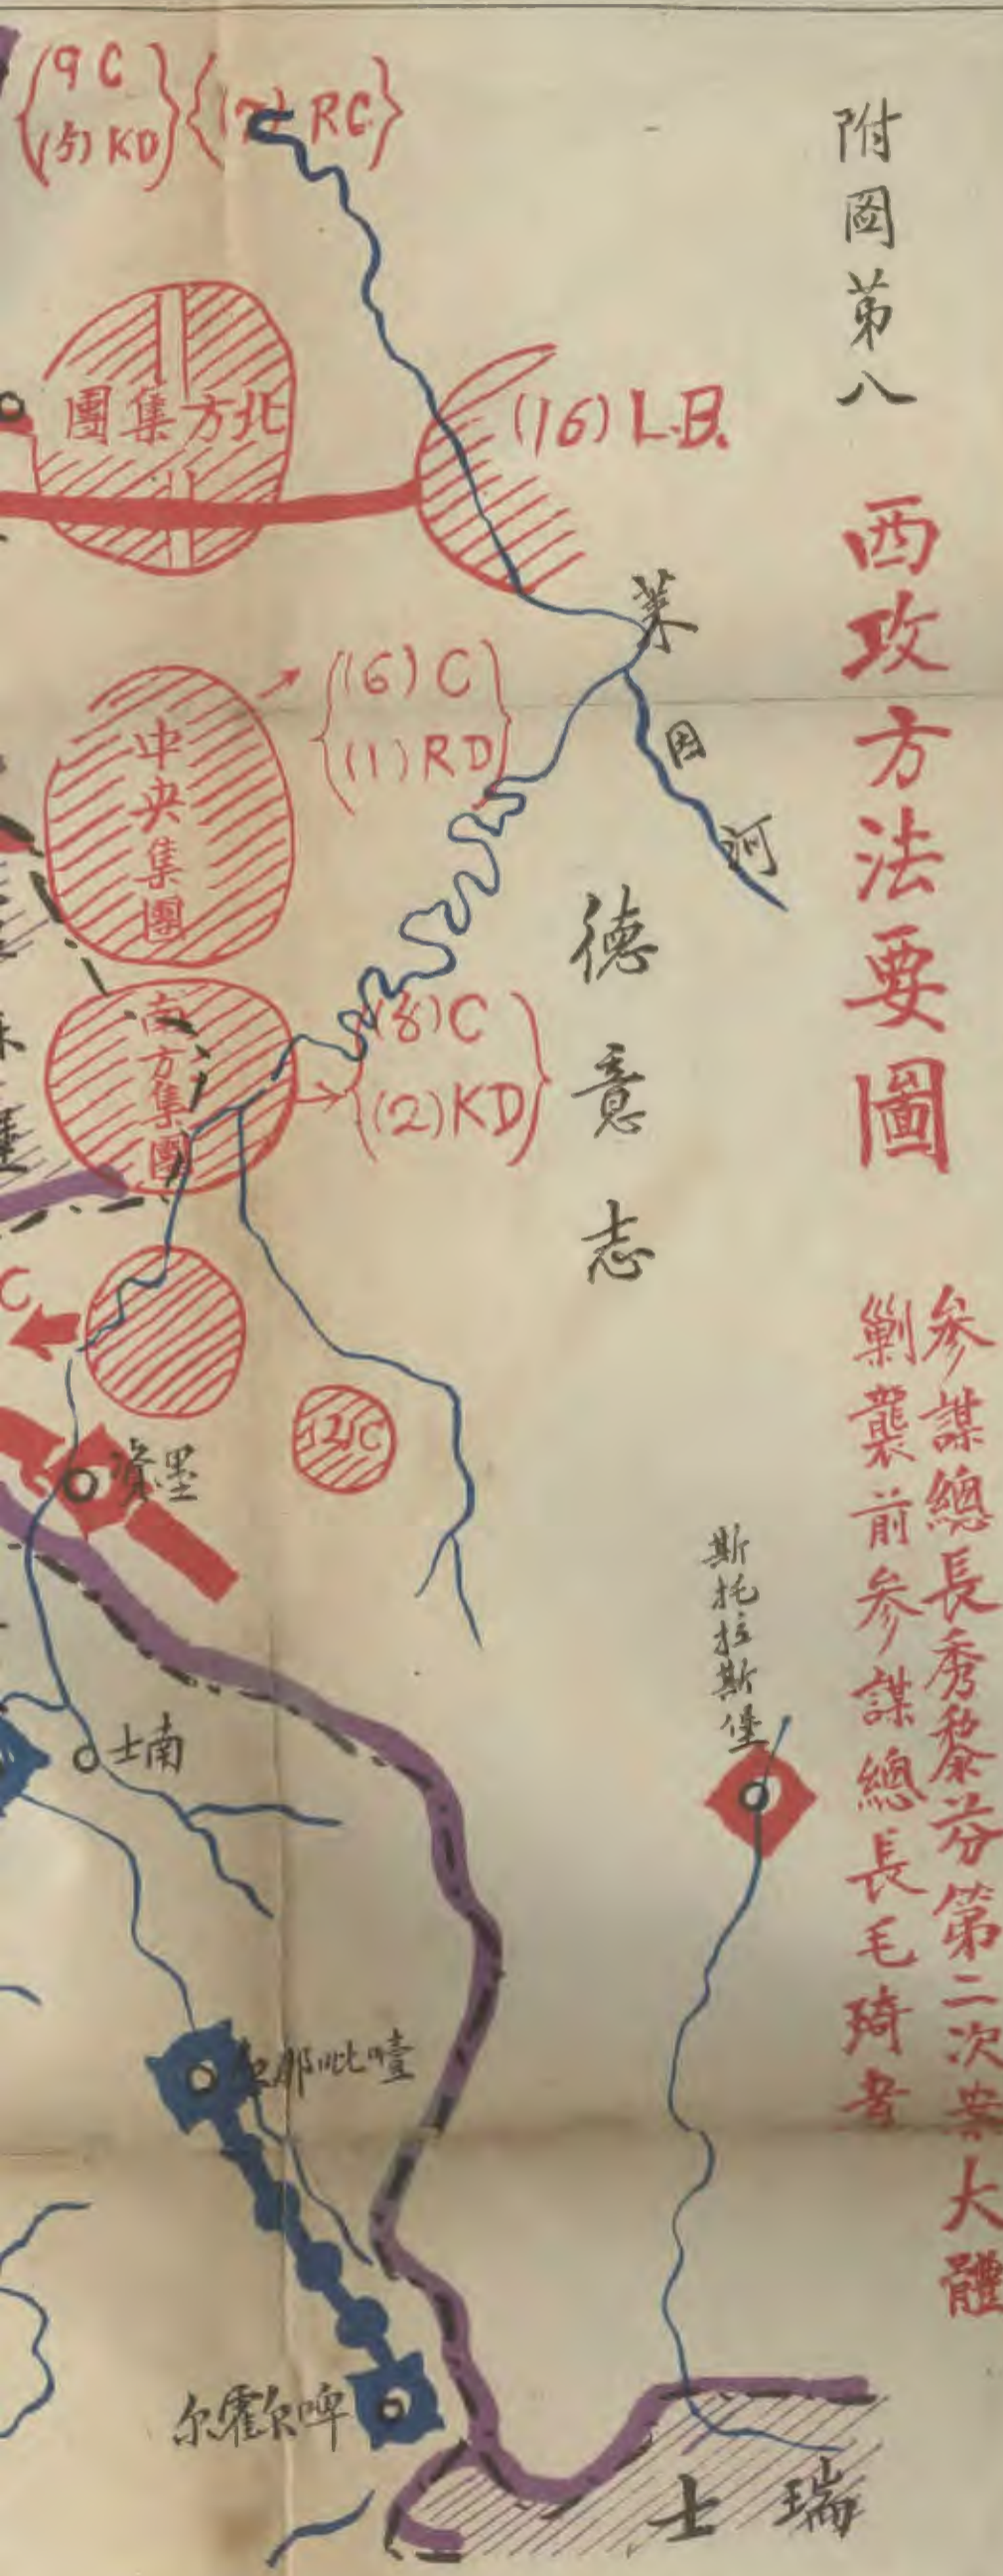 附圖第八
西攻方法要圖
參謀總長秀黎芬第二次案大體
剿襲前參謀總長毛琦者
(9 C
(5) KD)
{(7) RC}
北方集團
(16) L.B.
萊因河
中央集團
(6) C
(1) RD
德意志
南方集團
(8) C
(2) KD
C
(2)C
資墨
斯托拉斯堡
南士
尔霍尔啤
瑞士